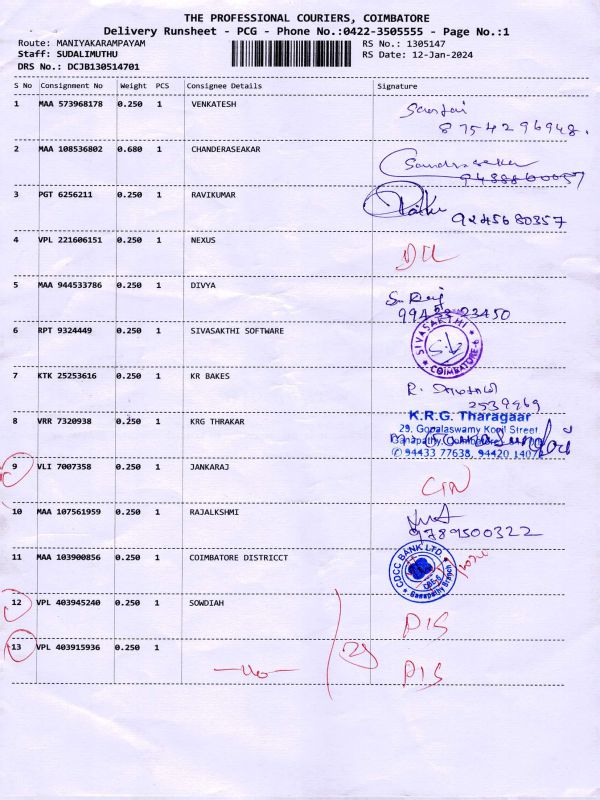 THE PROFESSIONAL COURIERS, COIMBATORE
Delivery Runsheet - PCG - Phone No.:0422-3505555 - Page No.:1
Route: MANIYAKARAMPAYAM RS No.: 1305147
Staff: SUDALIMUTHU RS Date: 12-Jan-2024
DRS No.: DCJB130514701
S No Consignment No Weight PCS Consignee Details Signature
1 MAA 573968178 0.250 1 VENKATESH
8754296948.
2 MAA 108536802 0.680 1 CHANDERASEAKAR
3 PGT 6256211 0.250 1 RAVIKUMAR
9245680357
4 VPL 221606151 0.250 1 NEXUS
5 MAA 944533786 0.250 1 DIVYA
6 RPT 9324449 0.250 1 SIVASAKTHI SOFTWARE
SIVASAKTHI COIMBATORE-6
7 KTK 25253616 0.250 1 KR BAKES
2539969
8 VRR 7320938 0.250 1 KRG THRAKAR
K.R.G. Tharagaar
29, Gopalaswamy Kovil Street
Ganapathy, Coimbatore
94433 77638, 94420 1407
9 VLI 7007358 0.250 1 JANKARAJ
10 MAA 107561959 0.250 1 RAJALKSHMI
9789500322
11 MAA 103900856 0.250 1 COIMBATORE DISTRICCT
CDCC BANK LTD. Ganapathy Branch CBE-6
12 VPL 403945240 0.250 1 SOWDIAH
DIS
13 VPL 403915936 0.250 1
DIS